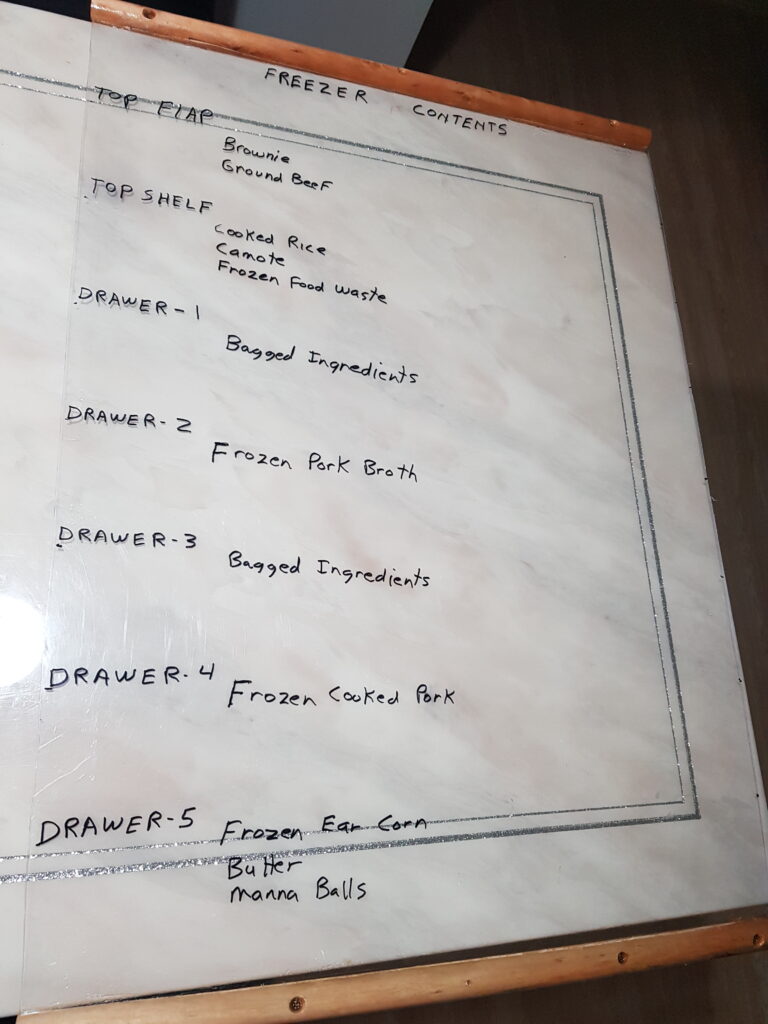 FREEZER CONTENTS
TOP FLAP
Brownie
Ground Beef
TOP SHELF
Cooked Rice
Camote
Frozen Food Waste
DRAWER-1
Bagged Ingredients
DRAWER-2
Frozen Pork Broth
DRAWER-3
Bagged Ingredients
DRAWER-4 Frozen Cooked Pork
DRAWER-5 Frozen Ear Corn
Butter
Manna Balls